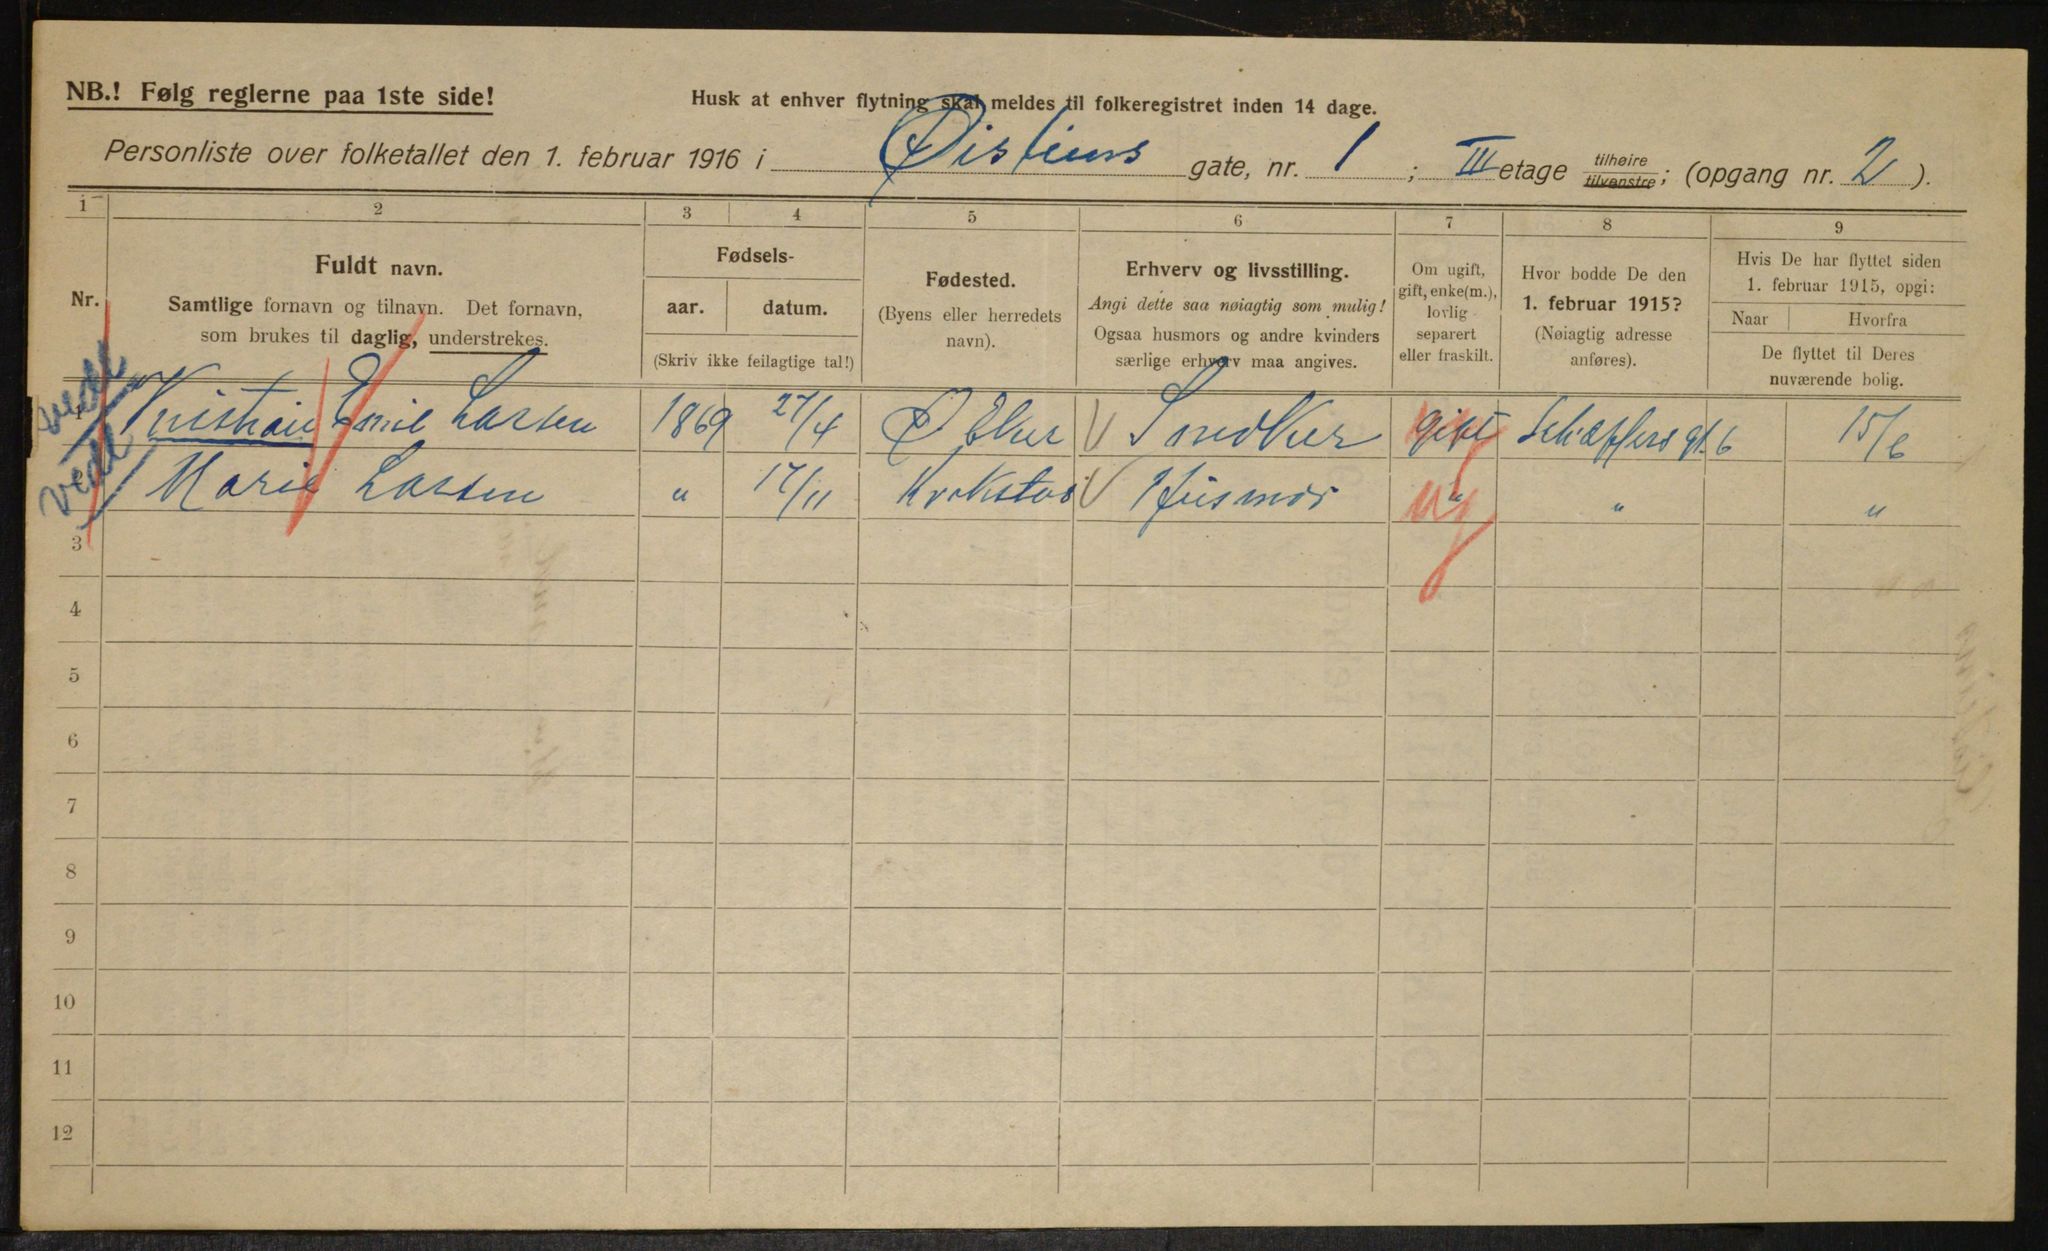 NB.! Følg reglerne paa 1ste side!
Husk at enhver flytning skal meldes til folkeregistret inden 14 dage.
Personliste over folketallet den 1. februar 1916 i Øisteins gate, nr. 1; III etage tilhøire tilvenstre; (opgang nr. 2).
1 2 3 4 5 6 7 8 9
Nr. Fuldt navn. Samtlige fornavn og tilnavn. Det fornavn, som brukes til daglig, understrekes.
Fødsels- aar. datum. (Skriv ikke feilagtige tal!)
Fødested. (Byens eller herredets navn).
Erhverv og livsstilling. Angi dette saa nøiagtig som mulig! Ogsaa husmors og andre kvinders særlige erhverv maa angives.
Om ugift, gift, enke(m.), lovlig separert eller fraskilt.
Hvor bodde De den 1. februar 1915? (Nøiagtig adresse anføres).
Hvis De har flyttet siden 1. februar 1915, opgi: Naar Hvorfra De flyttet til Deres nuværende bolig.
1 Kristian Emil Larsen 1869 27/4 Ø Eker Snedker gift Schæffers gt. 6 15/6
Marie Larsen " 17/11 Husmor " " "
3
4
5
6
7
8
9
10
11
12